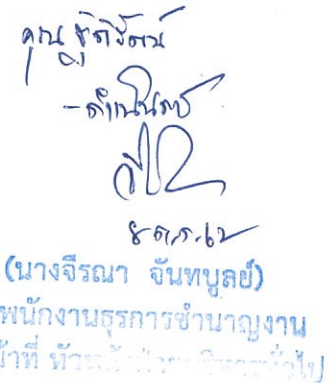 คุณ ชุติรัตน์
- ดำเนินการ
8 ต.ค. 62
(นางจีรณา จันทบูลย์)
พนักงานธุรการชำนาญงาน
หน้าที่ หัวหน้าฝ่ายบริหารทั่วไป